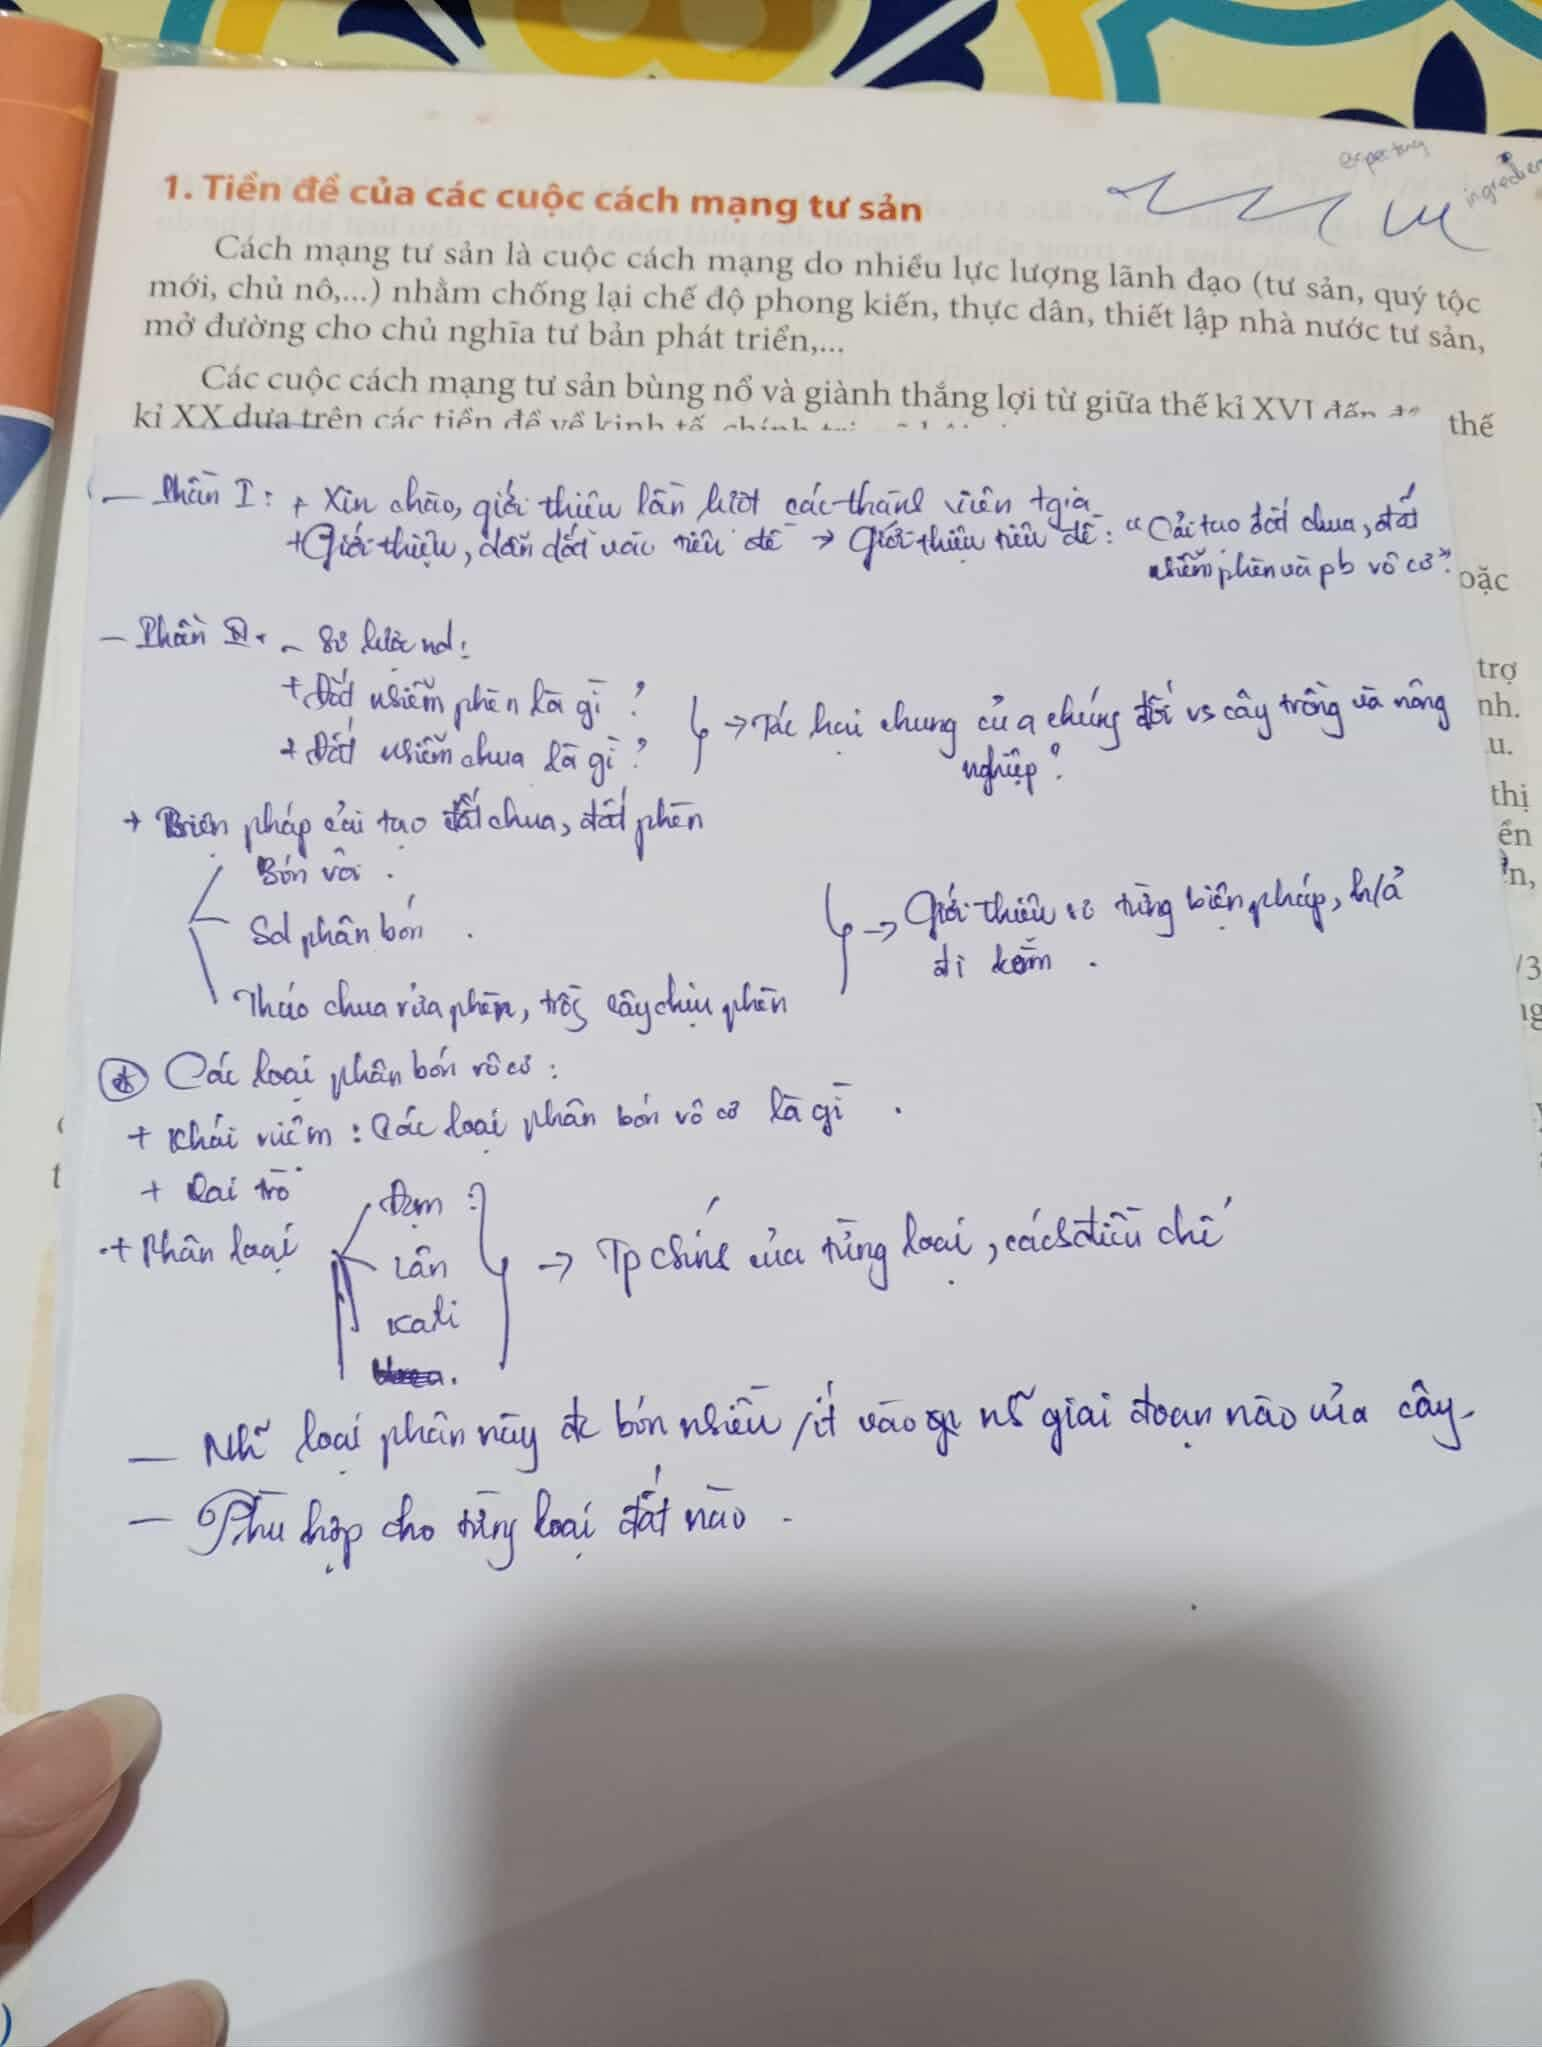 1. Tiền đề của các cuộc cách mạng tư sản
expecting
ingredien
Cách mạng tư sản là cuộc cách mạng do nhiều lực lượng lãnh đạo (tư sản, quý tộc
mới, chủ nô,...) nhằm chống lại chế độ phong kiến, thực dân, thiết lập nhà nước tư sản,
mở đường cho chủ nghĩa tư bản phát triển,...
Các cuộc cách mạng tư sản bùng nổ và giành thắng lợi từ giữa thế kỉ XVI đến thế
kỉ XX dựa trên các tiền đề về kinh tế, chính trị,
- Phần I: + Xin chào, giới thiệu lần lượt các thành viên tgia
+ Giới thiệu, dẫn dắt vào tiêu đề → Giới thiệu tiêu đề: "Cải tạo đất chua, đất
nhiễm phèn và pb vô cơ".
oặc
- Phần II. - Sơ lược nd:
+ Đất nhiễm phèn là gì?
+ Đất nhiễm chua là gì?
→ Tác hại chung của chúng đối vs cây trồng và nông
nghiệp?
trợ
nh.
u.
thị
ền
n,
+ Biện pháp cải tạo đất chua, đất phèn
Bón vôi.
Sd phân bón.
Tháo chua rửa phèn, trồng cây chịu phèn
→ Giới thiệu từng biện pháp, h/ả
đi kèm.
/3
ng
* Các loại phân bón vô cơ:
+ Khái niệm: Các loại phân bón vô cơ là gì.
+ Vai trò
+ Phân loại
Đạm
Lân
Kali
→ Tp chính của từng loại, cách điều chế
- Nh~ loại phân này đc bón nhiều/ít vào n~ giai đoạn nào của cây.
- Phù hợp cho từng loại đất nào.